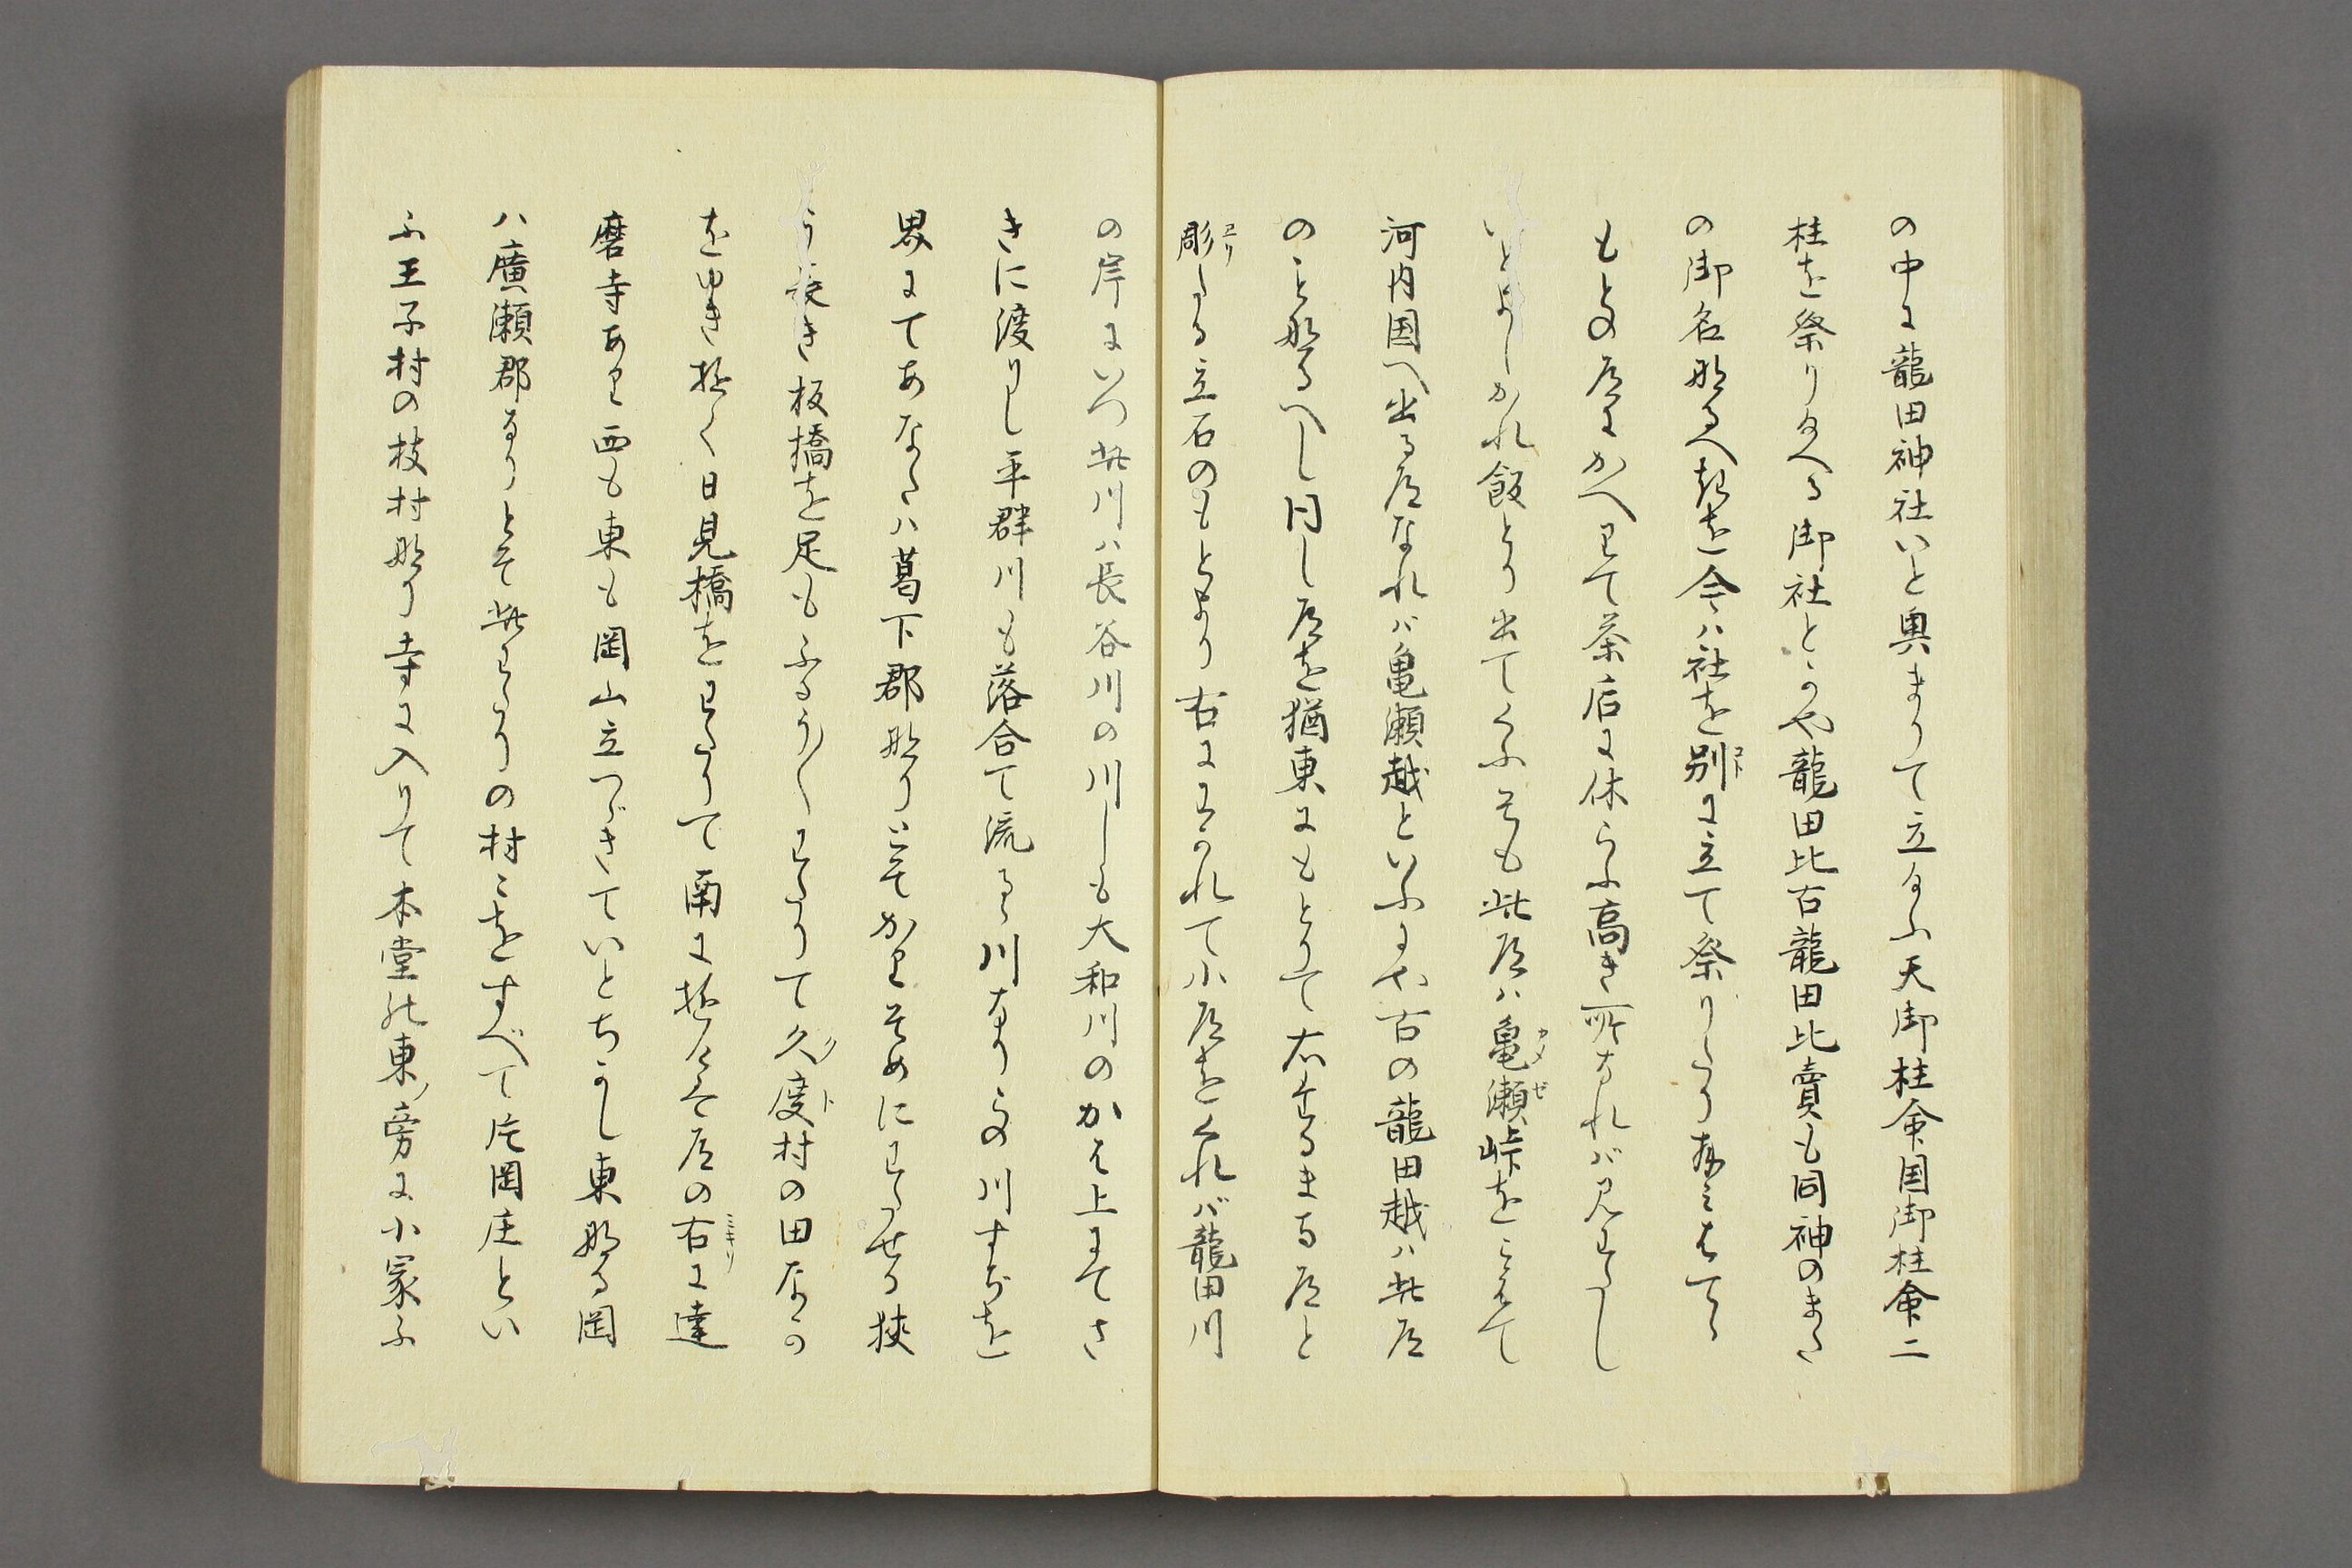 の中に龍田神社いと奥まりて立給ふ天御柱命国御柱命二
柱を祭り給へる御社とかや龍田比古龍田比賣も同神のまた
の御名なるべきを今ハ社を別に立て祭りたり拝みをへてら
もとの道にかへりて茶店に休らふ高き所なれバ見わたし
いとよしかれ飯とり出てくふそも此道ハ亀瀬峠をこえて
河内国へ出る道なれバ亀瀬越といふにや古の龍田越ハ此道
のこと那るへし同し道を猶東にもとりて右大るまる道と
彫たる立石のもとより右にわかれて小道をくれバ龍田川
の岸にいつ此川ハ長谷川の川しも大和川のかは上にてさ
きに渡りし平群川も落合て流るゝ川なりこの川すぢを
界にてあなたハ葛下郡なりとてかりそめにわたせる狭
う長き板橋を足もふるう〳〵わたりて久度村の田なか
をゆき〳〵日見橋をわたりて南に行道の右に達
磨寺あり西も東も岡山立つゞきていとちかし東なる岡
ハ廣瀬郡なりとそ此わたりの村〻をすべて片岡庄とい
ふ王子村の枝村なり寺に入りて本堂の東ノ旁に小家ふ